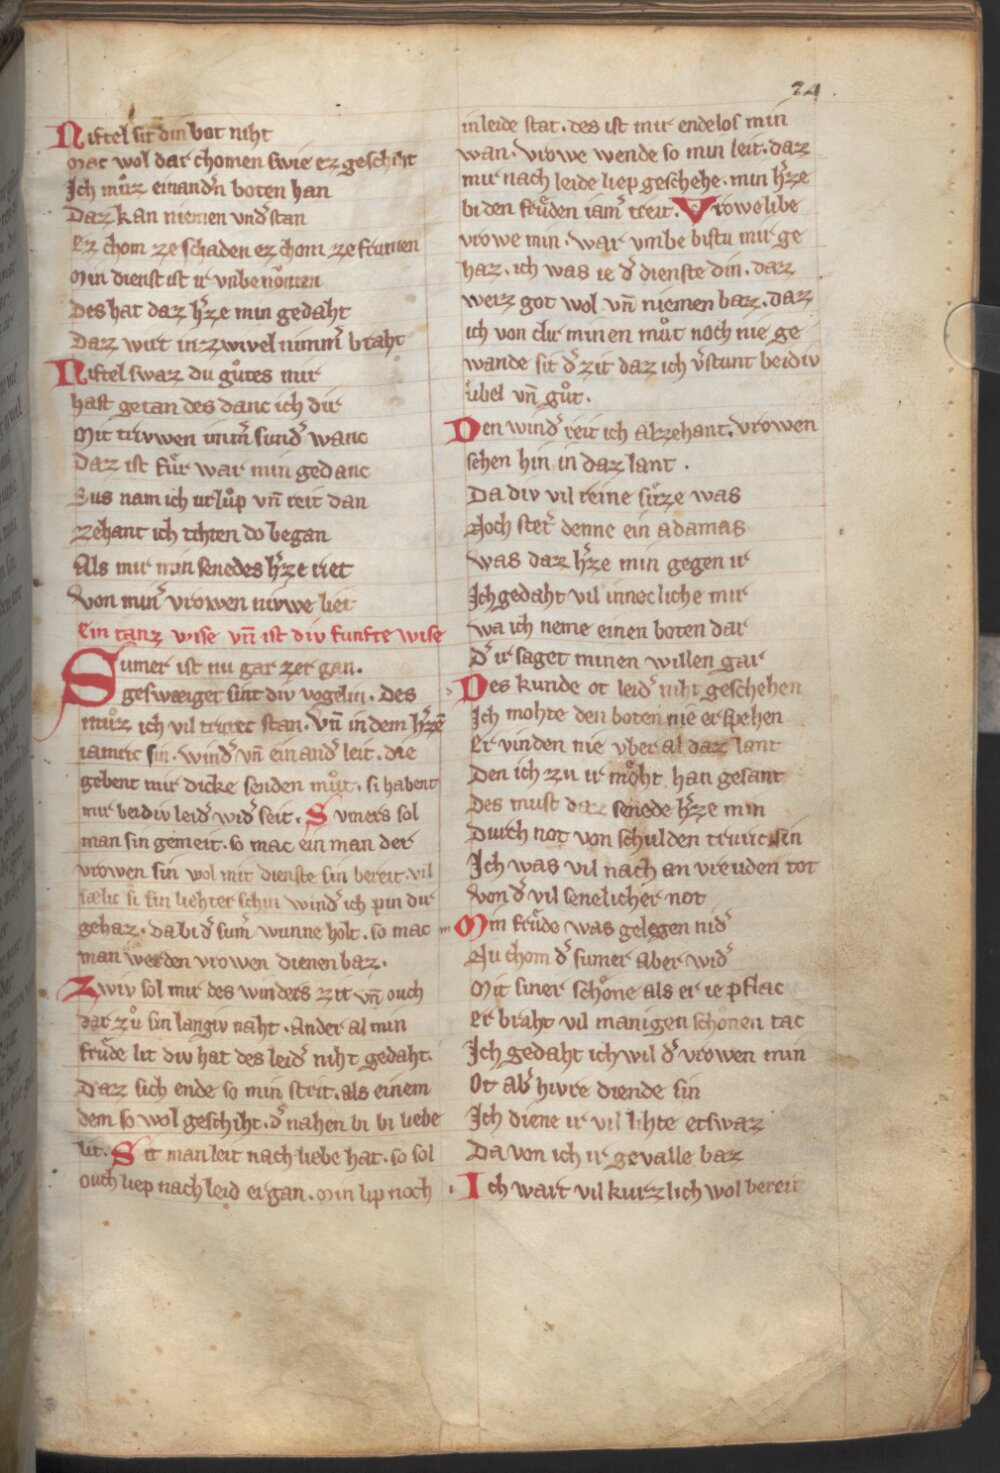 24
Niftel sit din bot niht
Mac wol dar chomen swie ez geschiht
Ich mu̓z einand'n boten han
Daz kan niemen vnd'stan
Ez chom ze schaden ez chom ze frumen
Min dienst ist ir vnbenomen
Des hat daz h'ze min gedaht
Daz wirt in zwivel nimm' braht
Niftel swaz du gůtes mir
hast getan des danc ich dir
Mit triwen imm' sund' wanc
Daz ist fůr war min gedanc
Sus nam ich urlůp vn̄ reit dan
zehant ich tihten do began
Als mir min senedes h'ze riet
Von min' vrowen nivwe liet
Ein tanz wise vn̄ ist div funfte wise
Sumer ist nu gar zergan.
gesweiget sint div vogelin. Des
můz ich vil truric stan. Vn̄ in dem h'zē
iameric sin. wind' vn̄ ein and' leit. die
gebent mir dicke senden můt. si habent
mir beidiv leid' wid' seit. Svmers sol
man sin gemeit. so mac ein man der
vrowen sin wol mit dienste sin bereit. vil
sælic si sin liehter schin wind' ich pin dir
gehaz. da bi d' sum' wunne holt. so mac
man werden vrowen dienen baz.
Zwiv sol mir des winders zit vn̄ ouch
dar zů sin langiv naht. Ander al min
frůde lit div hat des leid' niht gedaht.
Daz sich ende so min strit. als einem
dem so wol geschiht. d' nahen bi bi liebe
lit. Sit man leit nach liebe hat. so sol
ouch liep nach leid ergan. Min lip noch
in leide stat. des ist mir endelos min
wan. vrowe wende so min leit. daz
mir nach leide liep geschehe. min h'ze
bi den frůden iam' treit. Vrowe libe
vrowe min. war vmbe bistu mir ge
haz. ich was ie d' dienste din. daz
weiz got wol vn̄ niemen baz. daz
ich von dir minen můt noch nie ge
wande sit d' zit daz ich v'stunt beidiv
ůbel vn̄ gůt.
Den wind' reit ich alzehant. Vrowen
sehen hin in daz lant.
Da div vil reine sůze was
Noch stet' denne ein adamas
was daz h'ze min gegen ir
Ich gedaht vil innecliche mir
wa ich neme einen boten dar
D' ir saget minen willen gar
Des kunde ot leid' niht geschehen
Ich mohte den boten nie erspehen
Er vinden nie vber al daz lant
Den ich zu ir mo̓ht han gesant
Des must daz senede h'ze min
Durch not von schulden truric sin
Ich was vil nach an vreuden tot
Von d' vil senelicher not
Min frůde was gelegen nid'
Nu chom d' sumer aber wid'
Mit siner schône als er ie pflac
Er braht vil manigen schônen tac
Ich gedaht ich wil d' vrowen min
Ot ab' hivre diende sin
Ich diene ir vil lihte etswaz
Da von ich ir gevalle baz
Ich wart vil kurzlich wol bereit